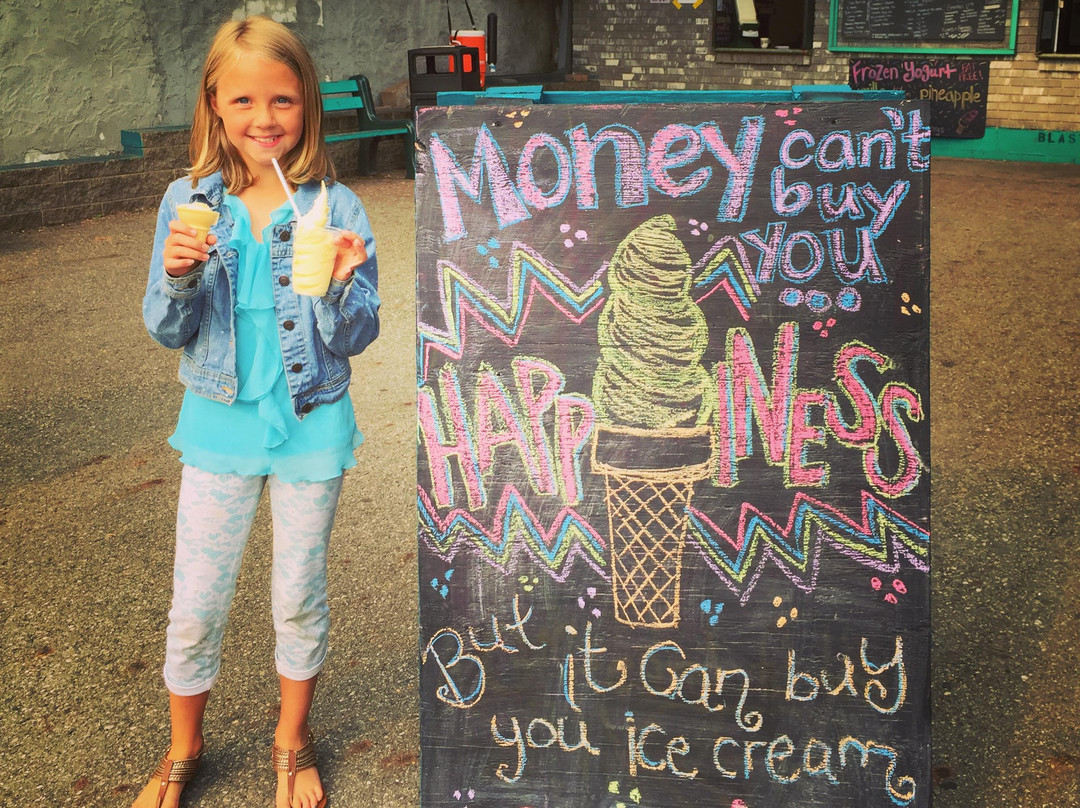 Money can't
buy
you
HAPPINESS
But it can buy
you ice cream
Frozen Yogurt
pineapple
BLAS